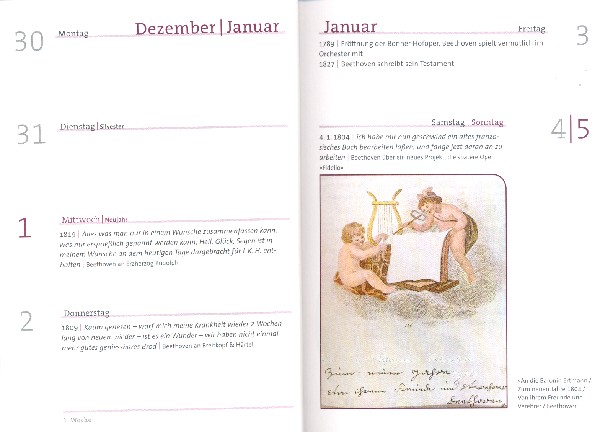 Dezember | Januar
30 Montag
31 Dienstag | Silvester
1 Mittwoch | Neujahr
1819 | Alles was man nur in einem Wunsche zusammenfassen kann,
was nur ersprießlich genannt werden kann, Heil, Glück, Segen ist in
meinem Wunsche an dem heutigen Tage dargebracht für I. K. H. ent-
halten | Beethoven an Erzherzog Rudolph
2 Donnerstag
1809 | Kaum genesen – warf mich meine Krankheit wieder 2 Wochen
lang von neuem nieder – ist es ein Wunder – wir haben nicht einmal
mehr gutes genießbares Brod | Beethoven an Breitkopf & Härtel
1. Woche
Januar
Freitag 3
1789 | Eröffnung der Bonner Hofoper, Beethoven spielt vermutlich im
Orchester mit
1827 | Beethoven schreibt sein Testament
Samstag Sonntag 4|5
4.1.1804 | Ich habe mir nun geschwind ein altes franzö-
sisches Buch bearbeiten laßen, und fange jezt daran an zu
arbeiten | Beethoven über ein neues Projekt, die spätere Oper
»Fidelio«
»An die Baronin Ertmann /
Zum neuen Jahre 1804 /
Von ihrem Freunde und
Verehrer / Beethoven